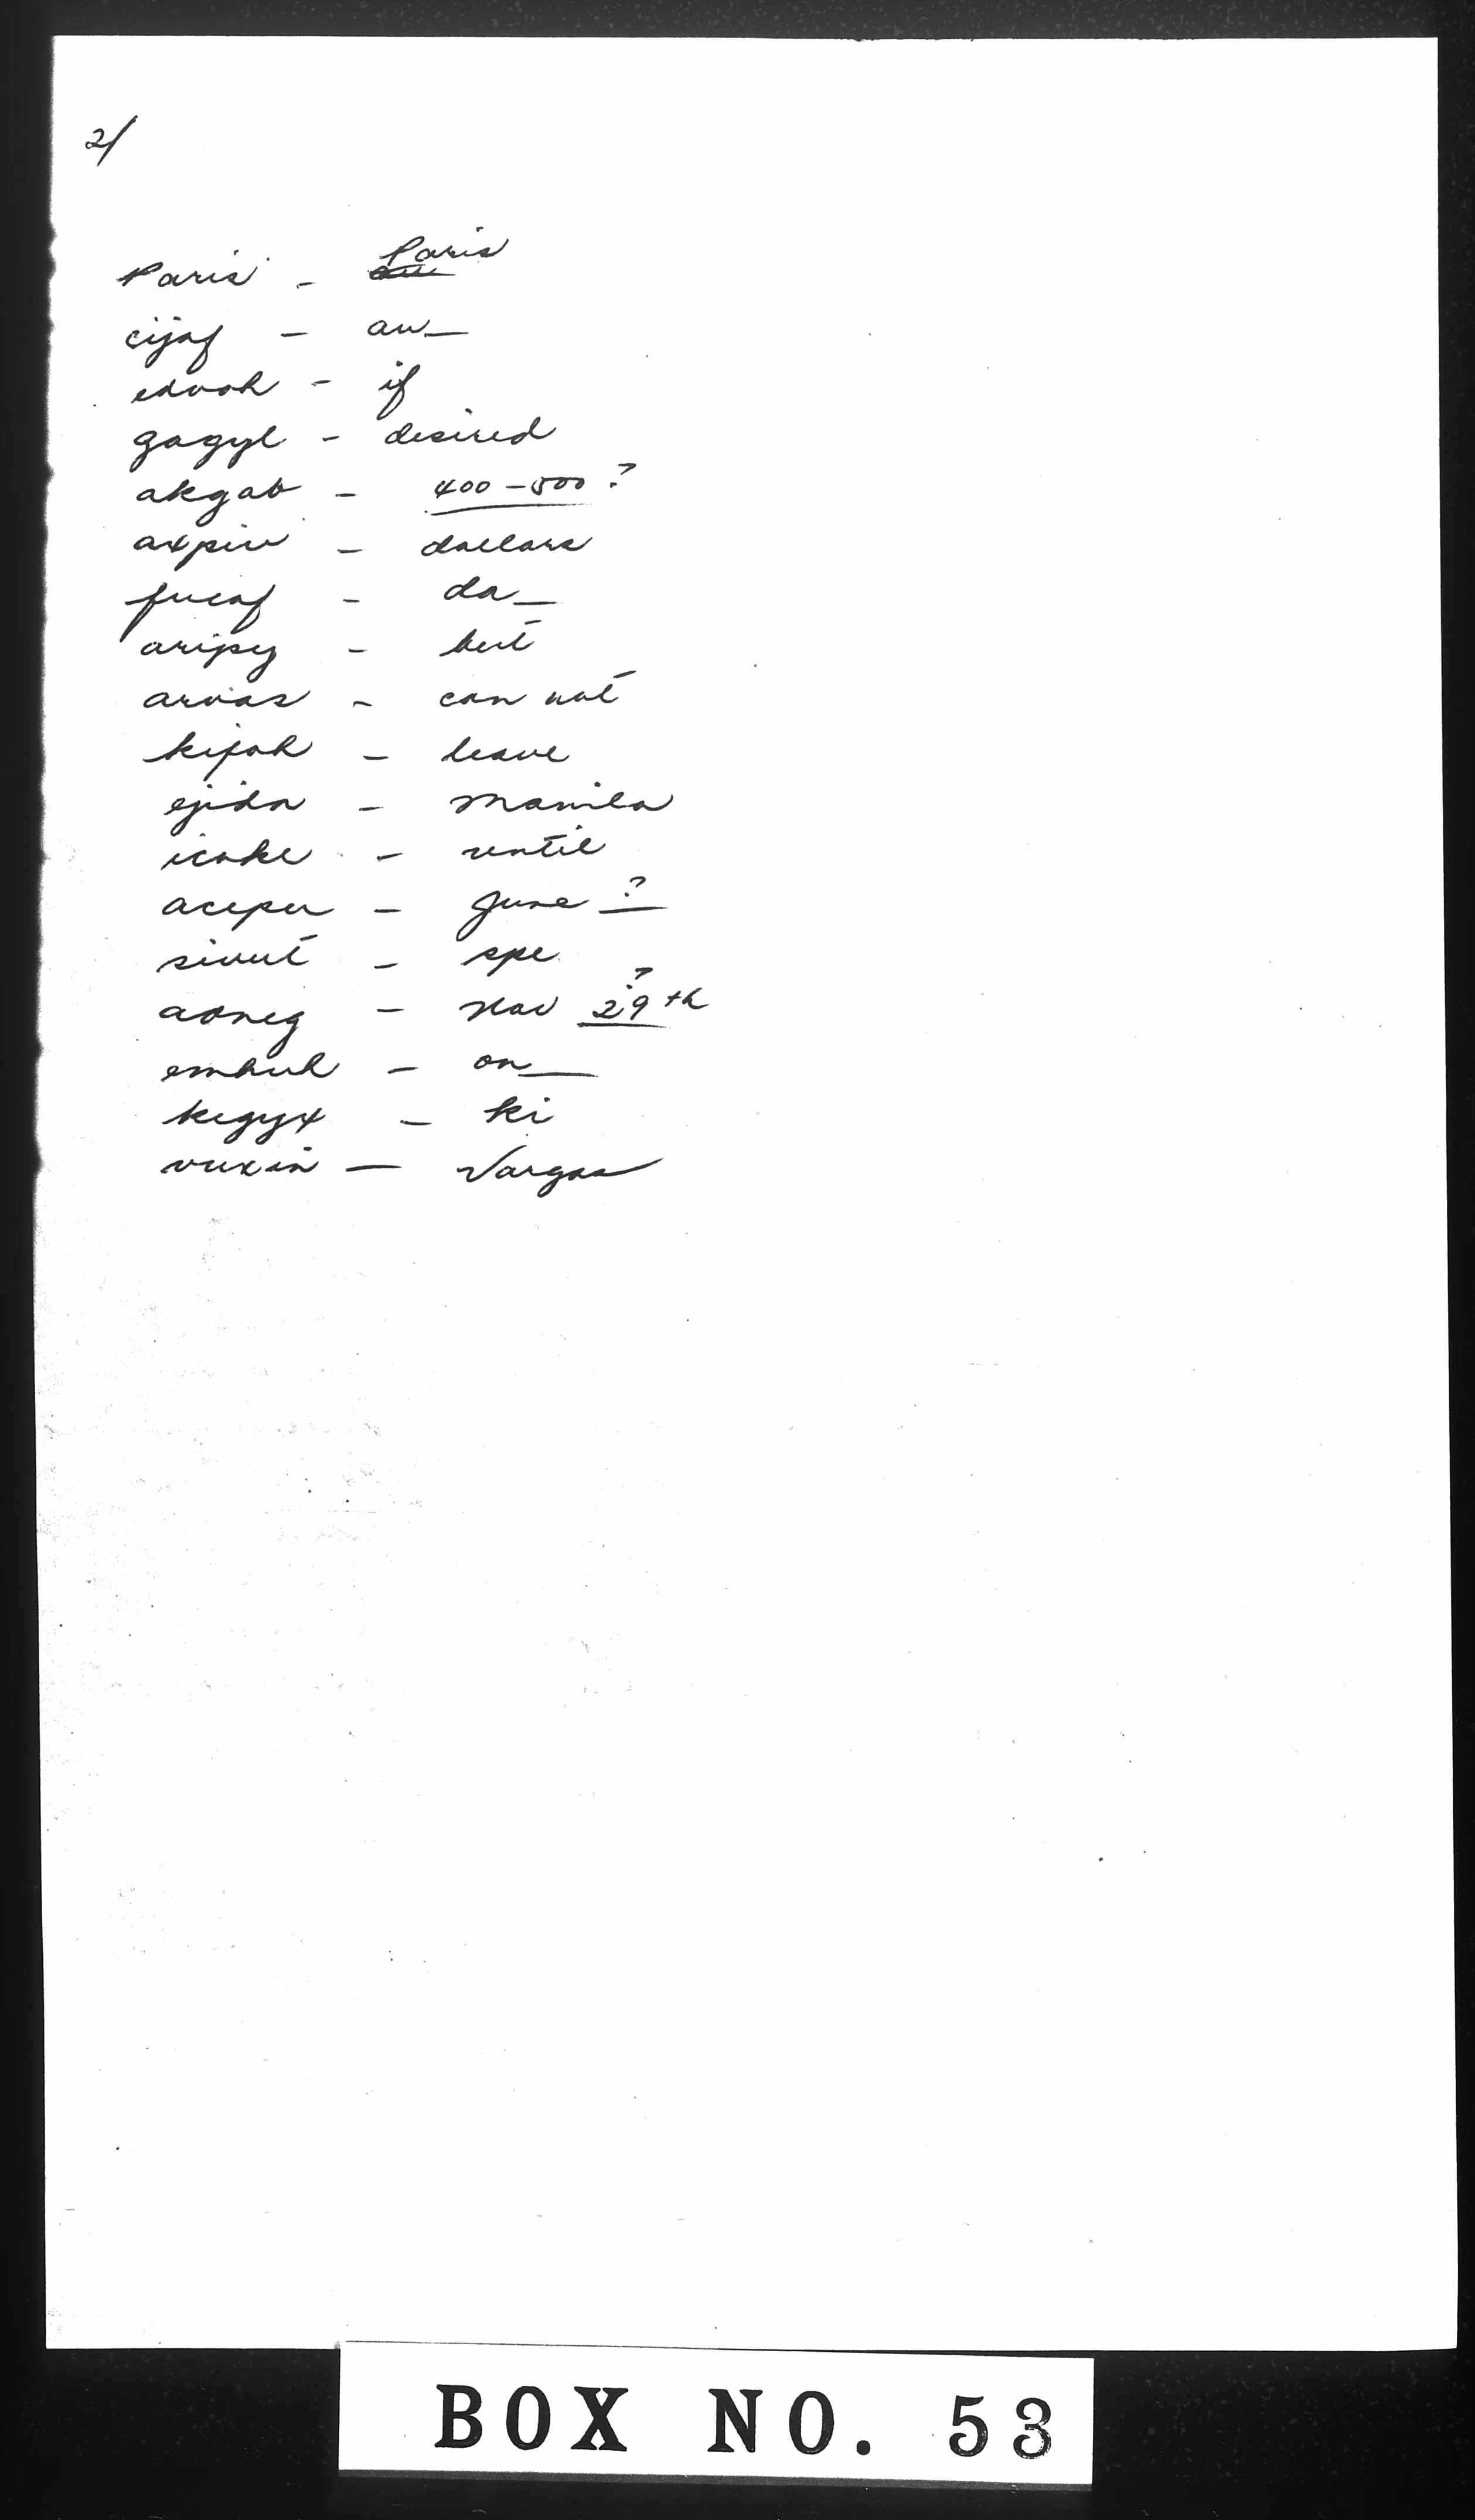 2/
Paris - Paris
cijaf - au_
edvok - if
gagyl - desired
akgab - 400-500?
axpiv - dollars
fucaf - da_
aripy - but
arvas - can not
kifok - leave
ejida - Manila
icoke - until
acepu - June ?
sivut - spe
adneg - Nov 29th ?
embuk - on_
kegyx - ki
vuxin - Vargas
BOX NO. 53